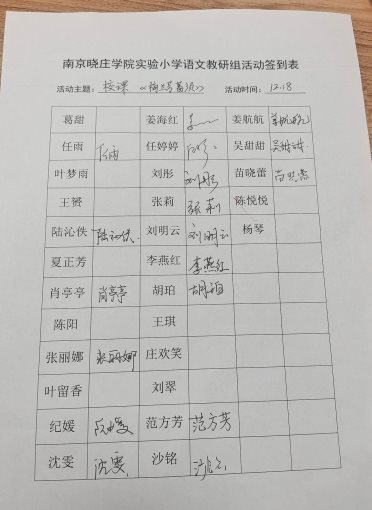 南京晓庄学院实验小学语文教研组活动签到表
活动主题：校课《梅兰芳蓄须》 活动时间：12.18
葛甜 姜海红 姜航航 姜航航
任雨 任雨 任婷婷 吴甜甜 吴甜甜
叶梦雨 刘彤 刘彤 苗晓蕾 苗晓蕾
王赟 张莉 张莉 陈悦悦
陆沁佚 陆沁佚 刘明云 刘明云 杨琴
夏正芳 李燕红 李燕红
肖亭亭 肖亭亭 胡珀 胡珀
陈阳 王琪
张丽娜 张丽娜 庄欢笑
叶留香 刘翠
纪媛 范方芳 范方芳
沈雯 沈雯 沙铭 沙铭